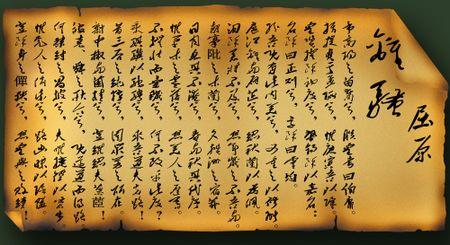 離騷
屈原
帝高陽之苗裔兮,朕皇考曰伯庸。
攝提貞于孟陬兮,惟庚寅吾以降。
皇覽揆余初度兮,肇錫余以嘉名:
名余曰正則兮,字余曰靈均。
紛吾既有此內美兮,又重之以修能。
扈江離與辟芷兮,紉秋蘭以為佩。
汨余若將不及兮,恐年歲之不吾與。
朝搴阰之木蘭兮,夕攬洲之宿莽。
日月忽其不淹兮,春與秋其代序。
惟草木之零落兮,恐美人之遲暮。
不撫壯而棄穢兮,何不改乎此度?
乘騏驥以馳騁兮,來吾道夫先路!
昔三后之純粹兮,固眾芳之所在。
雜申椒與菌桂兮,豈維紉夫蕙茝!
彼堯舜之耿介兮,既遵道而得路。
何桀紂之猖披兮,夫惟捷徑以窘步。
惟黨人之偷樂兮,路幽昧以險隘。
豈余身之憚殃兮,恐皇輿之敗績!